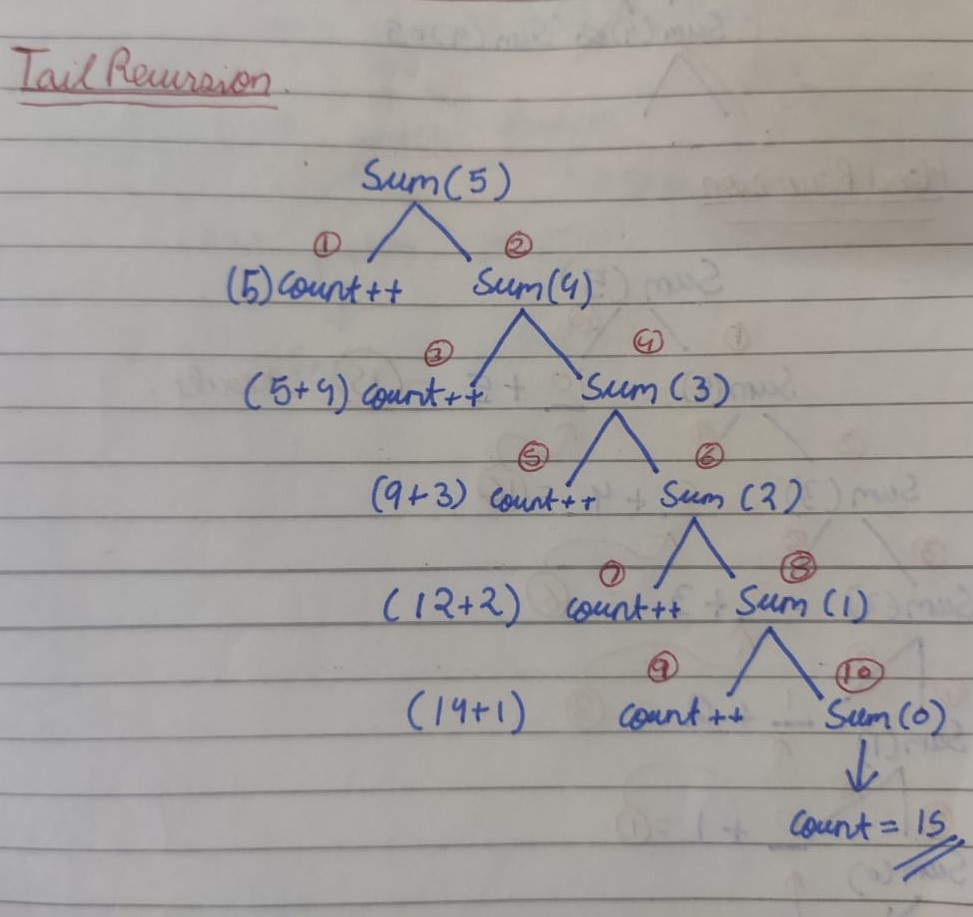 Tail Recursion.
Sum(5)
① ②
(5) count++ Sum(4)
③ ④
(5+4) count++ Sum (3)
⑤ ⑥
(9+3) count++ Sum (2)
⑦ ⑧
(12+2) count++ Sum (1)
⑨ ⑩
(14+1) count++ Sum(0)
↓
count = 15